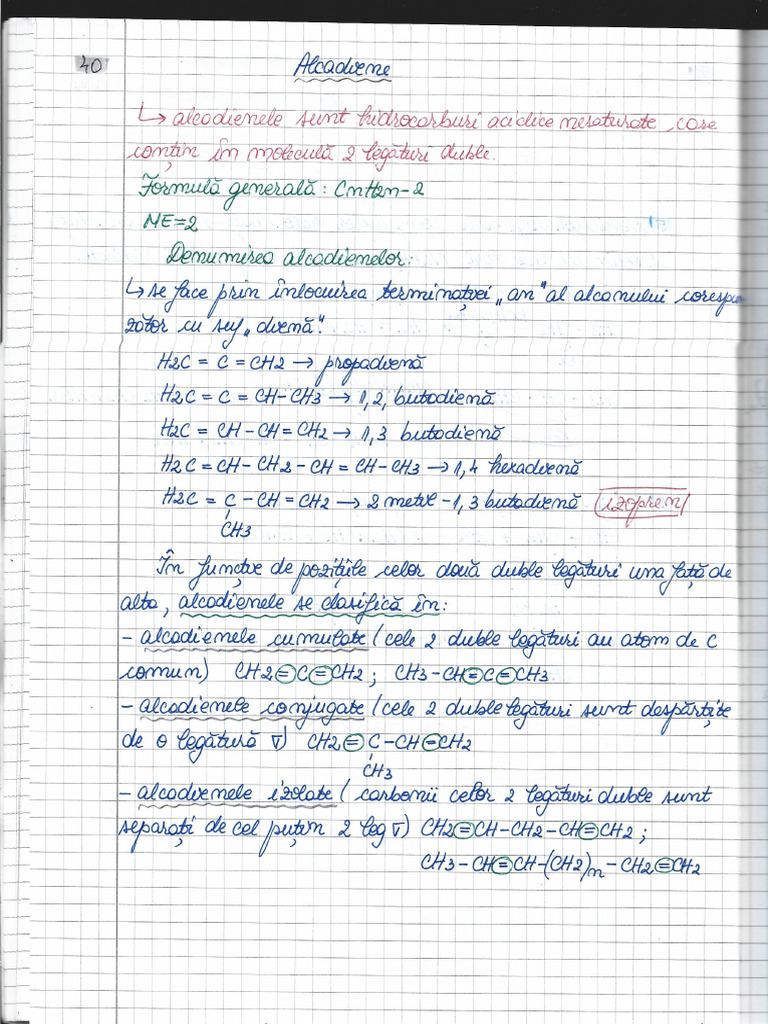 40
Alcadiene
↳ alcadienele sunt hidrocarburi aciclice nesaturate, care
conțin în moleculă 2 legături duble.
Formulă generală: CnH2n-2
NE=2
Denumirea alcadienelor:
↳ se face prin înlocuirea terminației „an” al alcanului corespun
zător cu suf „dienă”.
H2C = C = CH2 → propadienă
H2C = C = CH-CH3 → 1,2, butadienă
H2C = CH - CH = CH2 → 1,3 butadienă
H2C = CH - CH2 - CH = CH-CH3 → 1,4 hexadienă
H2C = C - CH = CH2 → 2 metil -1,3 butadienă (izopren)
CH3
În funcție de pozițiile celor două duble legături una față de
alta, alcadienele se clasifică în:
- alcadienele cumulate (cele 2 duble legături au atom de C
comun) CH2=C=CH2 ; CH3-CH=C=CH3
- alcadienele conjugate (cele 2 duble legături sunt despărțite
de o legătură ∇) CH2=C-CH=CH2
CH3
- alcadienele izolate ( carbonii celor 2 legături duble sunt
separați de cel puțin 2 leg ∇) CH2=CH-CH2-CH=CH2 ;
CH3-CH=CH-(CH2)n-CH2=CH2